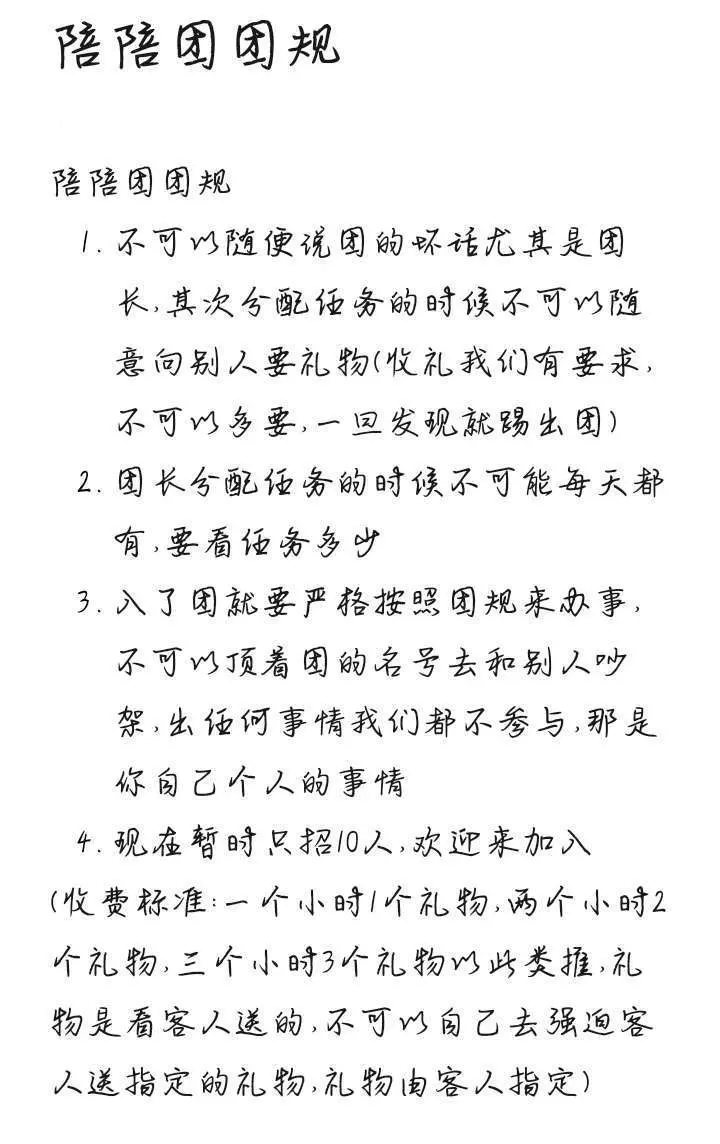 陪陪团团规
陪陪团团规
1. 不可以随便说团的坏话尤其是团
长,其次分配任务的时候不可以随
意向别人要礼物(收礼我们有要求,
不可以多要,一旦发现就踢出团)
2. 团长分配任务的时候不可能每天都
有,要看任务多少
3. 入了团就要严格按照团规来办事,
不可以顶着团的名号去和别人吵
架,出任何事情我们都不参与,那是
你自己个人的事情
4. 现在暂时只招10人,欢迎来加入
(收费标准:一个小时1个礼物,两个小时2
个礼物,三个小时3个礼物以此类推,礼
物是看客人送的,不可以自己去强迫客
人送指定的礼物,礼物由客人指定)